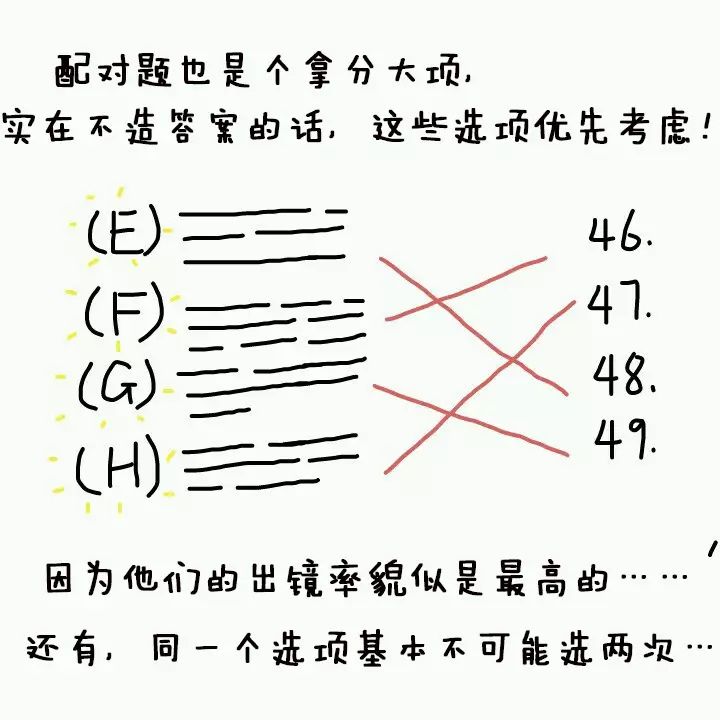 配对题也是个拿分大项,
实在不造答案的话, 这些选项优先考虑!
(E) 46.
(F) 47.
(G) 48.
(H) 49.
因为他们的出镜率貌似是最高的……
还有, 同一个选项基本不可能选两次…